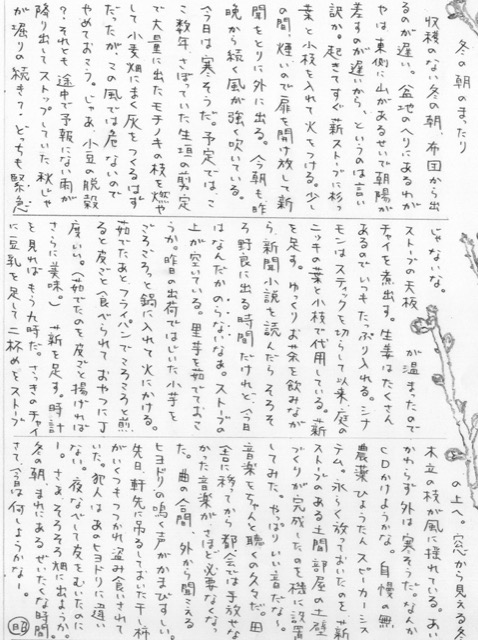 冬の朝のまったり
収穫のない冬の朝、布団から出
るのが遅い。盆地のへりにあるわが
やは東側に山があるせいで朝陽が
差すのが遅いから、というのは言い
訳か。起きてすぐ薪ストーブに杉っ
葉と小枝を入れて火をつける。少し
の間煙いので扉を開け放して新
聞をとりに外に出る。今朝も昨
晩から続く風が強く吹いている。
今日は寒そうだ。予定では、こ
こ数年、さぼっていた生垣の剪定
で大量に出たモチノキの枝を燃や
して小麦畑にまく灰をつくるはず
だったが、この風では危ないので
やめておこう。じゃあ、小豆の脱穀
?それも途中で予報にない雨が
降り出してストップしていた秋じゃ
が堀りの続き?どっちも緊急
じゃないな。
ストーブの天板が温まったので
チャイを煮出す。生姜はたくさん
あるのでいつもたっぷり入れる。シナ
モンはスティックを切らして以来、庭の
ニッキの葉と小枝で代用している。薪
を足す。ゆっくりお茶を飲みなが
ら、新聞小説を読んだらそろそ
ろ野良に出る時間だけれど、今日
はなんだかのらないなあ。ストーブの
上が空いている。里芋を茹でておこ
うか。昨日の出荷ではじいた小芋を
ごろごろっと鍋に入れて火にかける。
茹でたあとフライパンでころころと煎
ると皮ごと食べられておやつに丁
度いい。(茹でたのを皮ごと揚げれば
さらに美味。) 薪を足す。時計
を見ればもう九時だ。さっきのチャイ
に豆乳を足して二杯めをストーブ
の上へ。窓から見える冬
木立の枝が風に揺れている。あい
かわらず外は寒そうだ。なんか
CDかけようかな。自慢の無
農薬ひょうたんスピーカーシス
テム。永らく放っておいたのを新
ストーブのある土間部屋の土壁
づくりが完成したのを機に設置
してみた。やはりいい音だなー。
音楽をちゃんと聴くの久々だ。田
舎に移ってから都会では手放せな
かった音楽がさほど必要なくなっ
た。曲の合間、外から聞こえる
ヒヨドリの鳴く声がかまびすしい。
先日、軒先に吊るしておいた干し柿
がいくつもつつかれ盗み食いされて
いた。犯人はあのヒヨドリに違い
ない。夜なべして皮をむいたのに
ー。さあ、そろそろ畑に出ようか。
冬の朝、まれにあるぜいたくな時間。
さて、今日は何しようかなー。